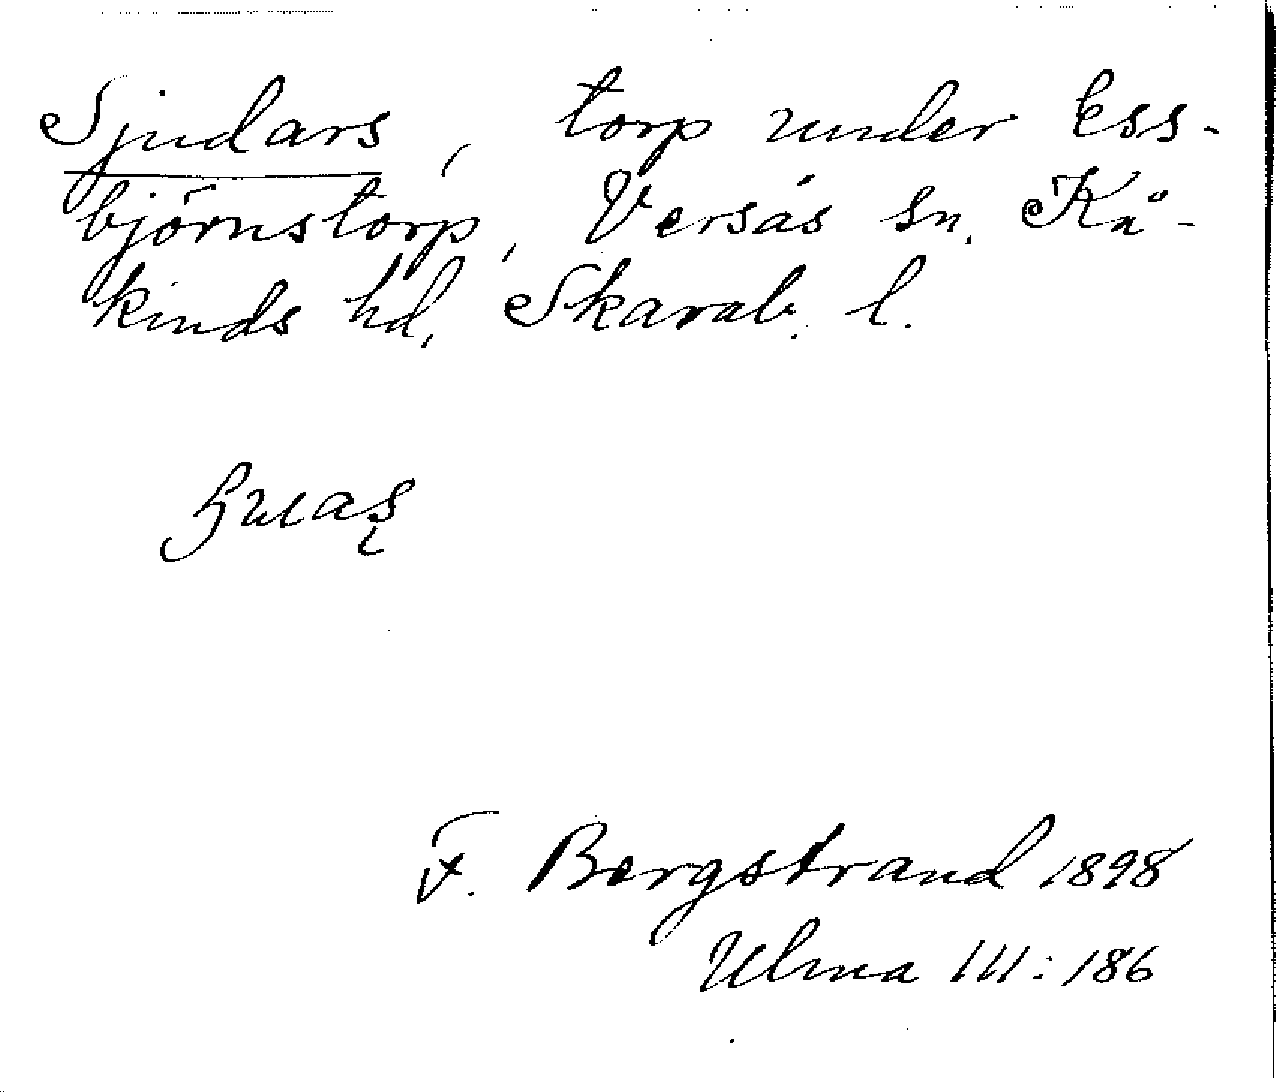 Sjudars, torp under Ess-
björnstorp, Versås sn, Kå-
kinds hd, Skarab. l.
F. Bergstrand 1898
Ulma 111:186